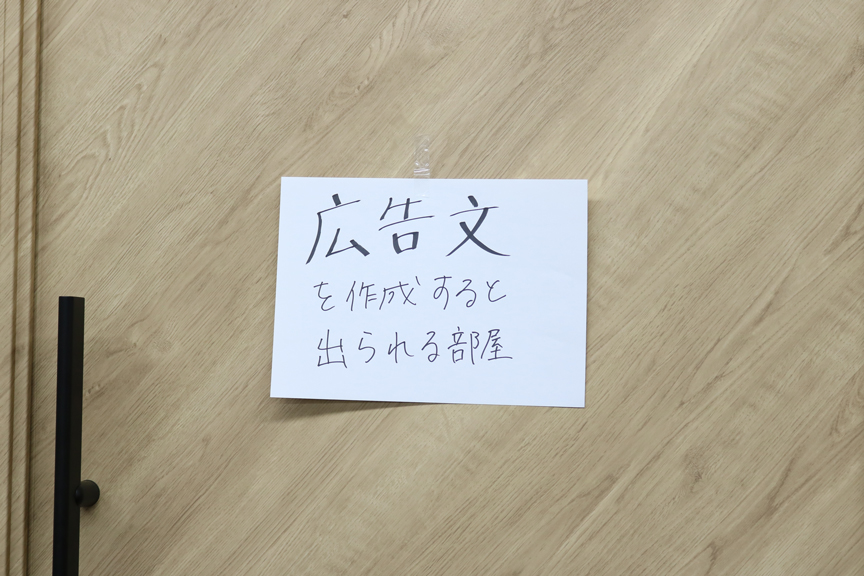 広告文
を作成すると
出られる部屋